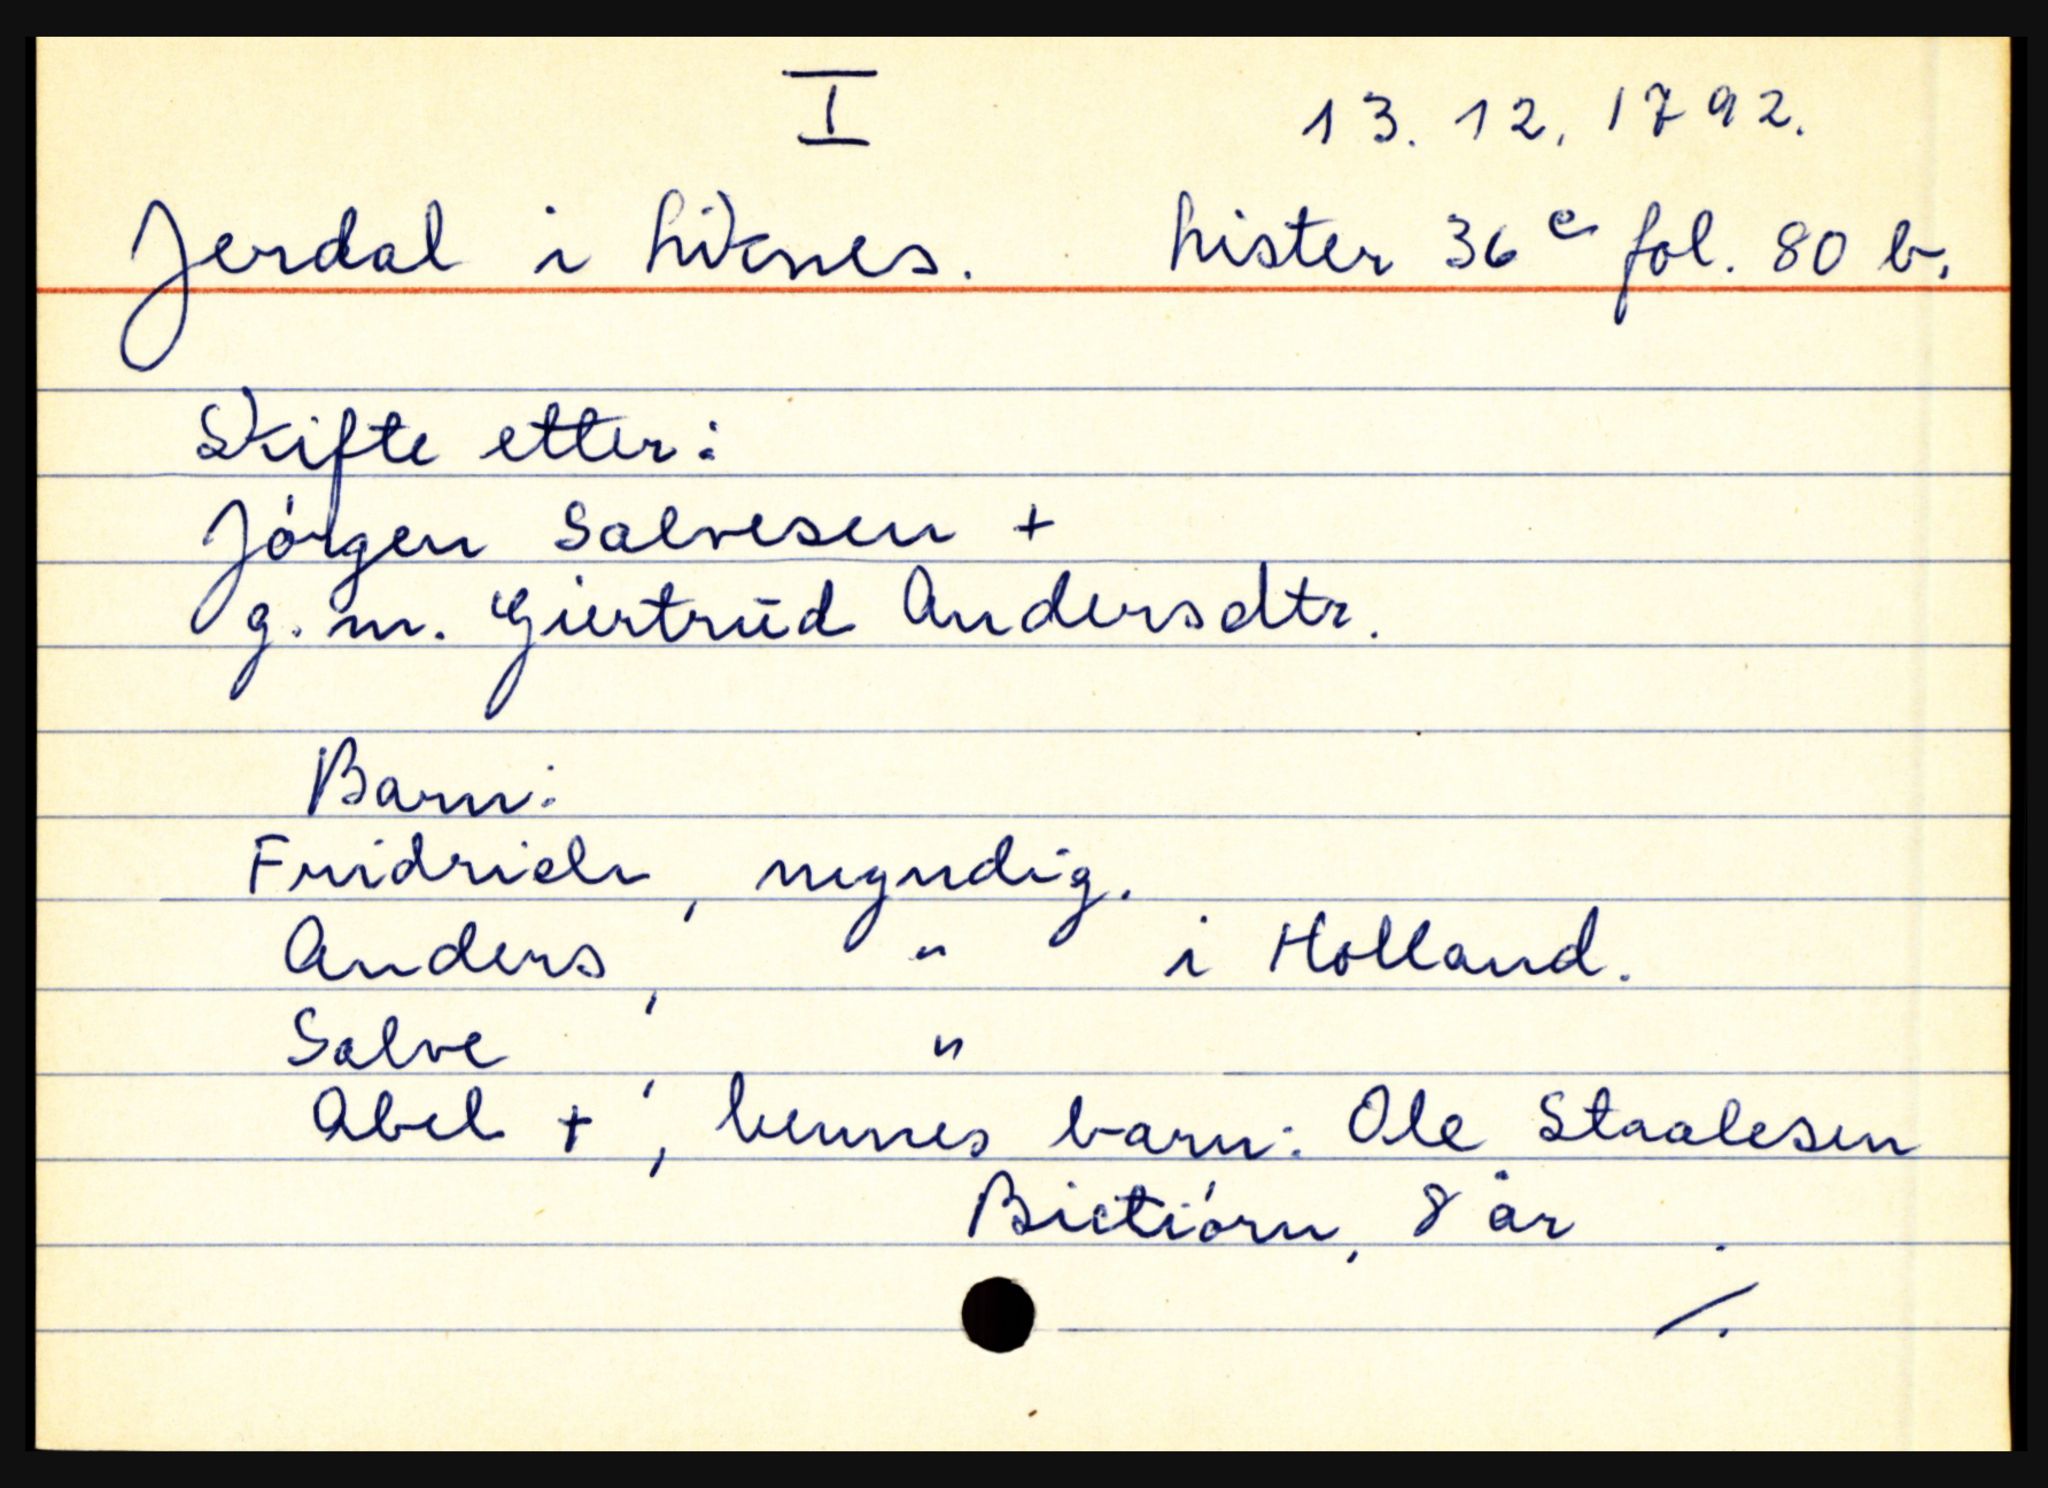 I
13. 12. 1792.
Jerdal i Liknes. Lister 36 c fol. 80 b.
Skifte etter:
Jórgen Salvesen +
g. m. Giertrūd Andersdtr.
Barn:
Fridrich, myndig.
Anders, " i Holland.
Salve, "
Abel +, hennes barn: Ole Staalesen
Bictiórn, 8 år.
/.